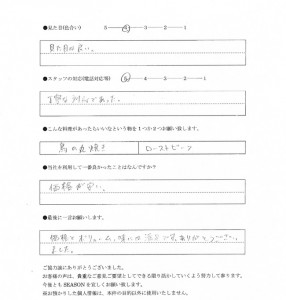 ●見た目(色合い) 5---④---3---2---1
見た目が良い。
●スタッフの対応(電話対応等) ⑤---4---3---2---1
丁寧な対応であった。
●こんな料理があったらいいなという物を1つか2つお願い致します。
鳥の丸焼き ローストビーフ
●当社を利用して一番良かったことはなんですか?
価格が安い。
●最後に一言お願いします。
価格とボリューム、味には満足
ありがとうござい
ました。
ご協力誠にありがとうございました。
お客様の声は、貴重なご意見ご要望としてできる限り活かしていくよう努力して参ります。
今後とも SEASON を宜しくお願い致します。
※お預かりした個人情報は、本件の目的以外に使用いたしません。